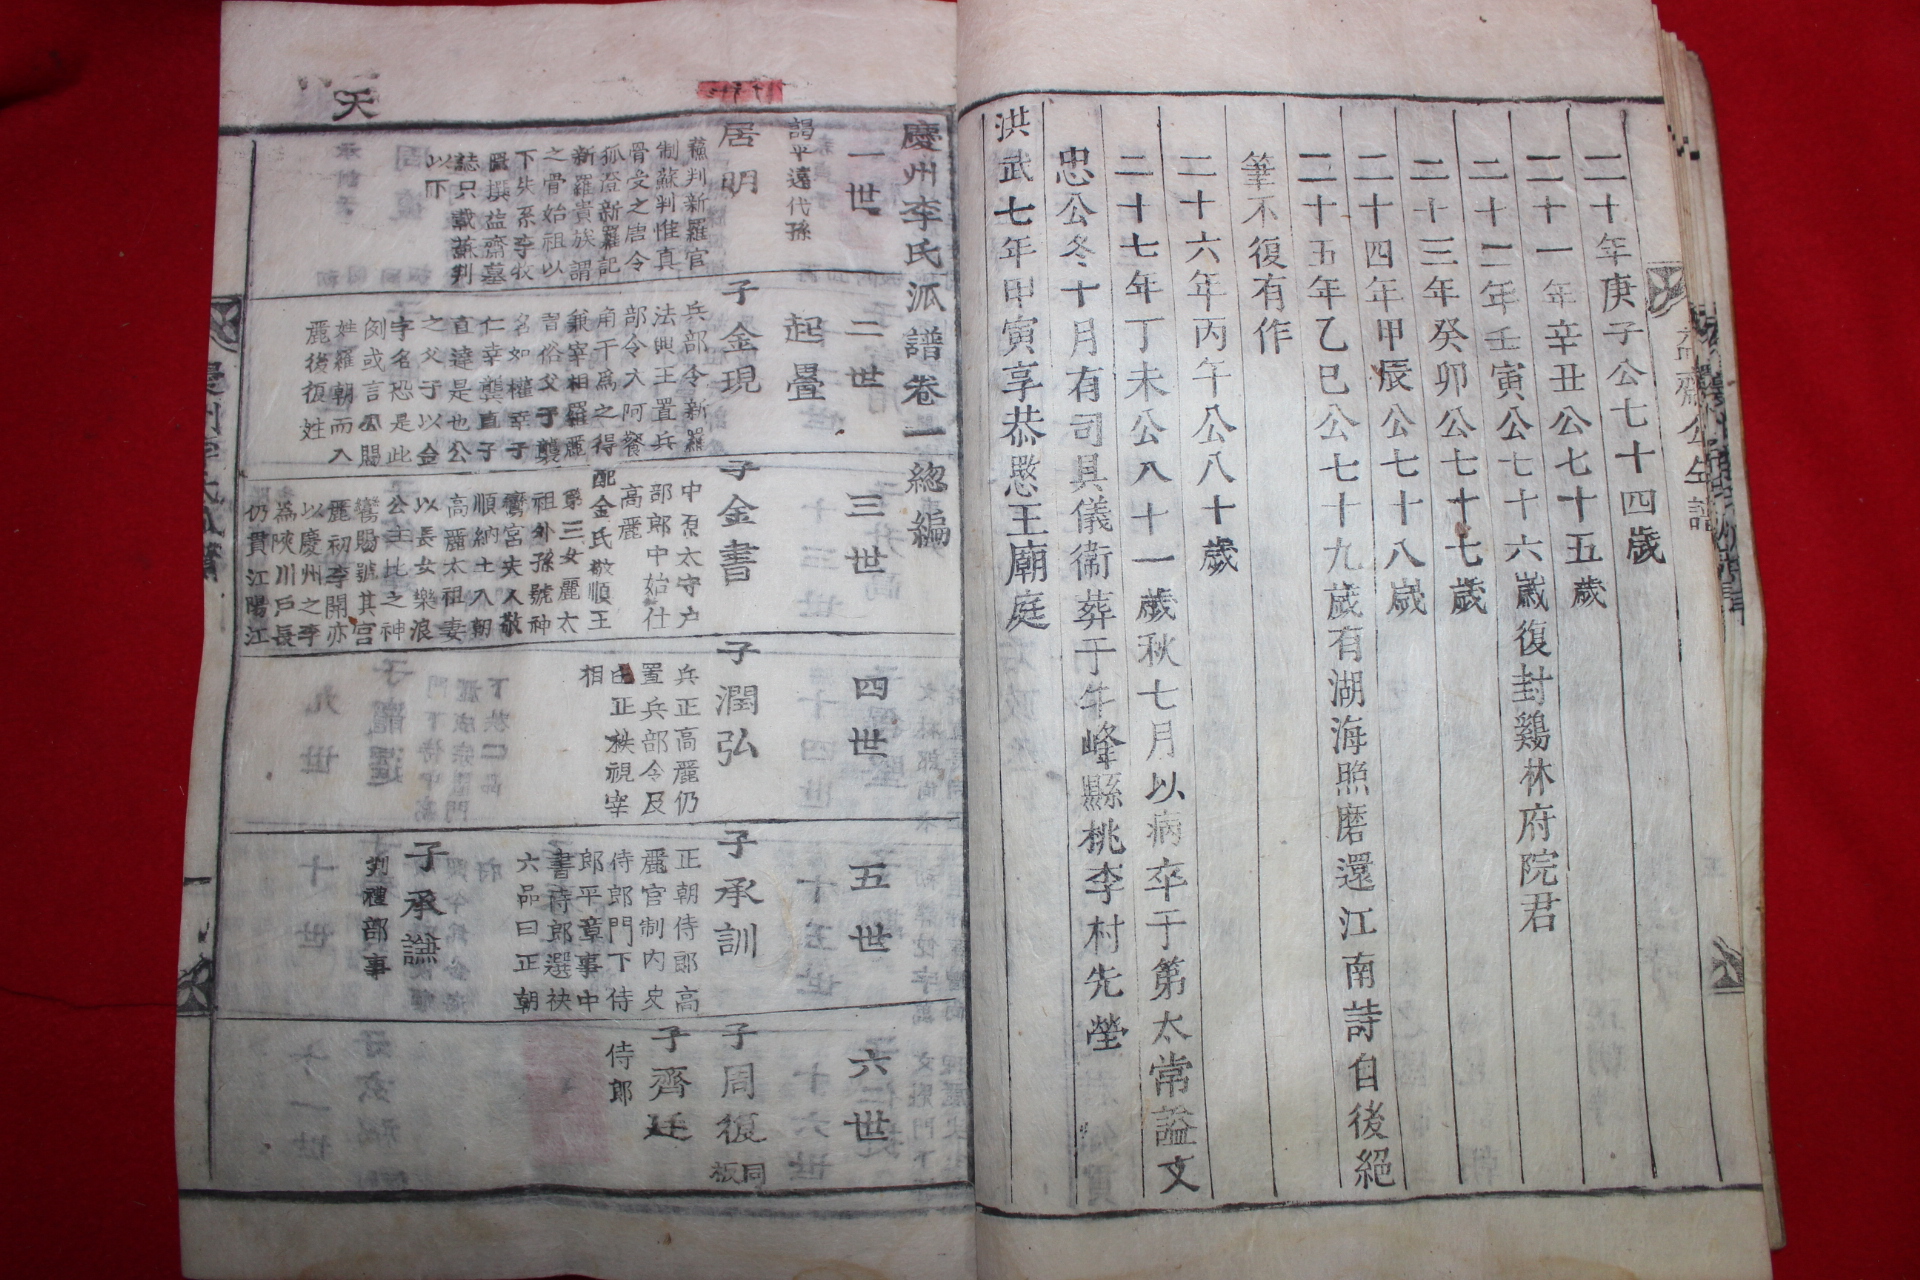 二十年庚子公七十四歲
二十一年辛丑公七十五歲
二十二年壬寅公七十六歲復封鷄林府院君
二十三年癸卯公七十七歲
二十四年甲辰公七十八歲
二十五年乙巳公七十九歲有湖海照磨還江南詩自後絕
筆不復有作
二十六年丙午公八十歲
二十七年丁未公八十一歲秋七月以病卒于第太常謚文
忠公冬十月有司具儀衛葬于牛峰縣桃李村先塋
洪武七年甲寅享恭愍王廟庭
益齋公年譜
慶州李氏派譜卷一總編
一世
謁平遠代孫
居明
蘇判新羅官
制蘇判惟真
骨受之唐令
狐澄新羅記
新羅貴族謂
之骨始祖以
下失系李牧
隱撰益齋墓
誌只載蘇判
以下
二世
起疊
子金現
兵部令新羅
法興王置兵
部令大阿飡
角干爲之得
兼宰相羅麗
言俗父子襲
名如權幸子
仁幸龔直子
直達是也公
之父子以金
字名恐是此
例或言公賜
姓羅朝而入
麗後復姓
三世
子金書
中原太守戶
部郎中始仕
高麗
配金氏敬順王
第三女麗太
祖外孫號神
鸞宮夫人敬
順納土入朝
高麗太祖妻
以長女樂浪
公主比之神
鸞賜號其宮
麗初李開亦
以慶州之李
爲陜川戶長
仍貫江陽江
四世
子潤弘
兵正高麗仍
置兵部令及
正秩視宰
相
五世
子承訓
正朝侍郎高
麗官制內史
侍郎門下侍
郎平章事中
書侍郎選袟
六品曰正朝
子承謙
判禮部事
六世
子周復
同板
子齊廷
侍郎
天
一